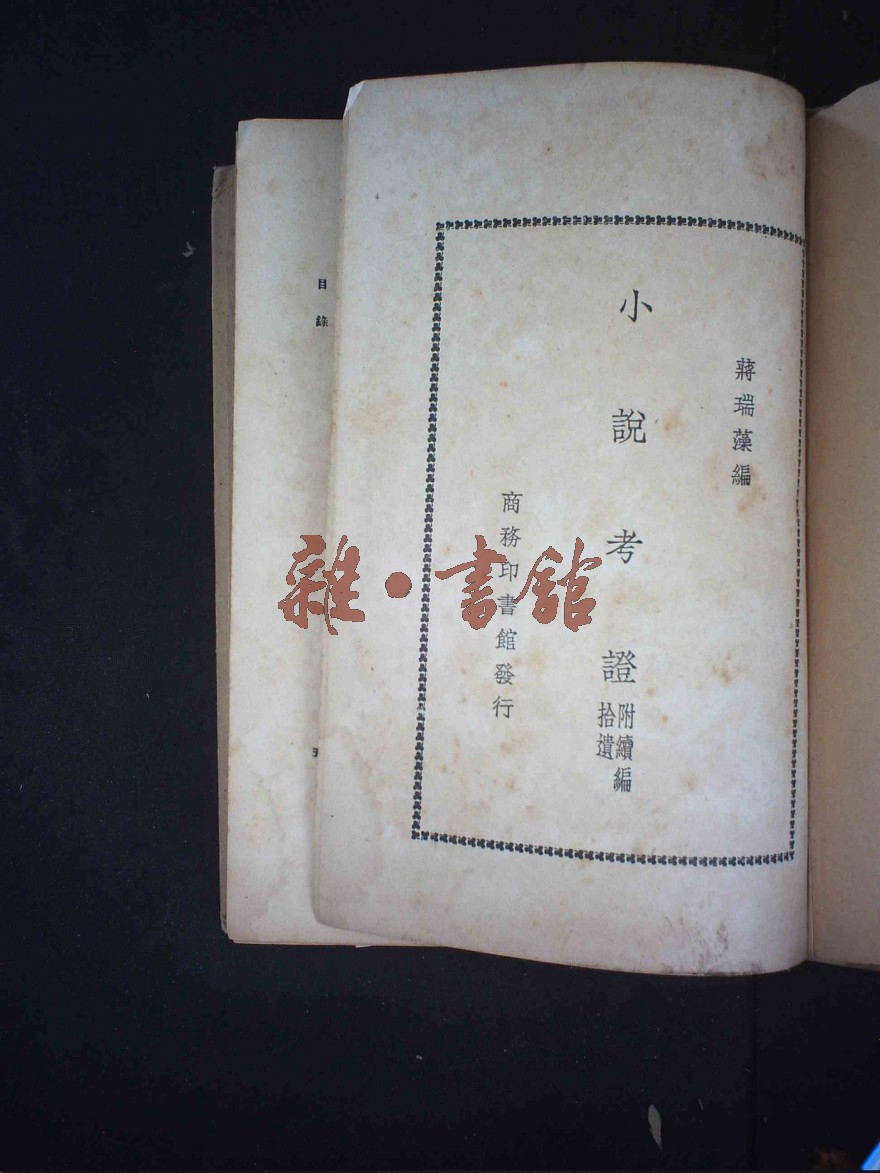 蔣瑞藻編
小說考證
附續編
拾遺
商務印書館發行
目錄
雜·書館